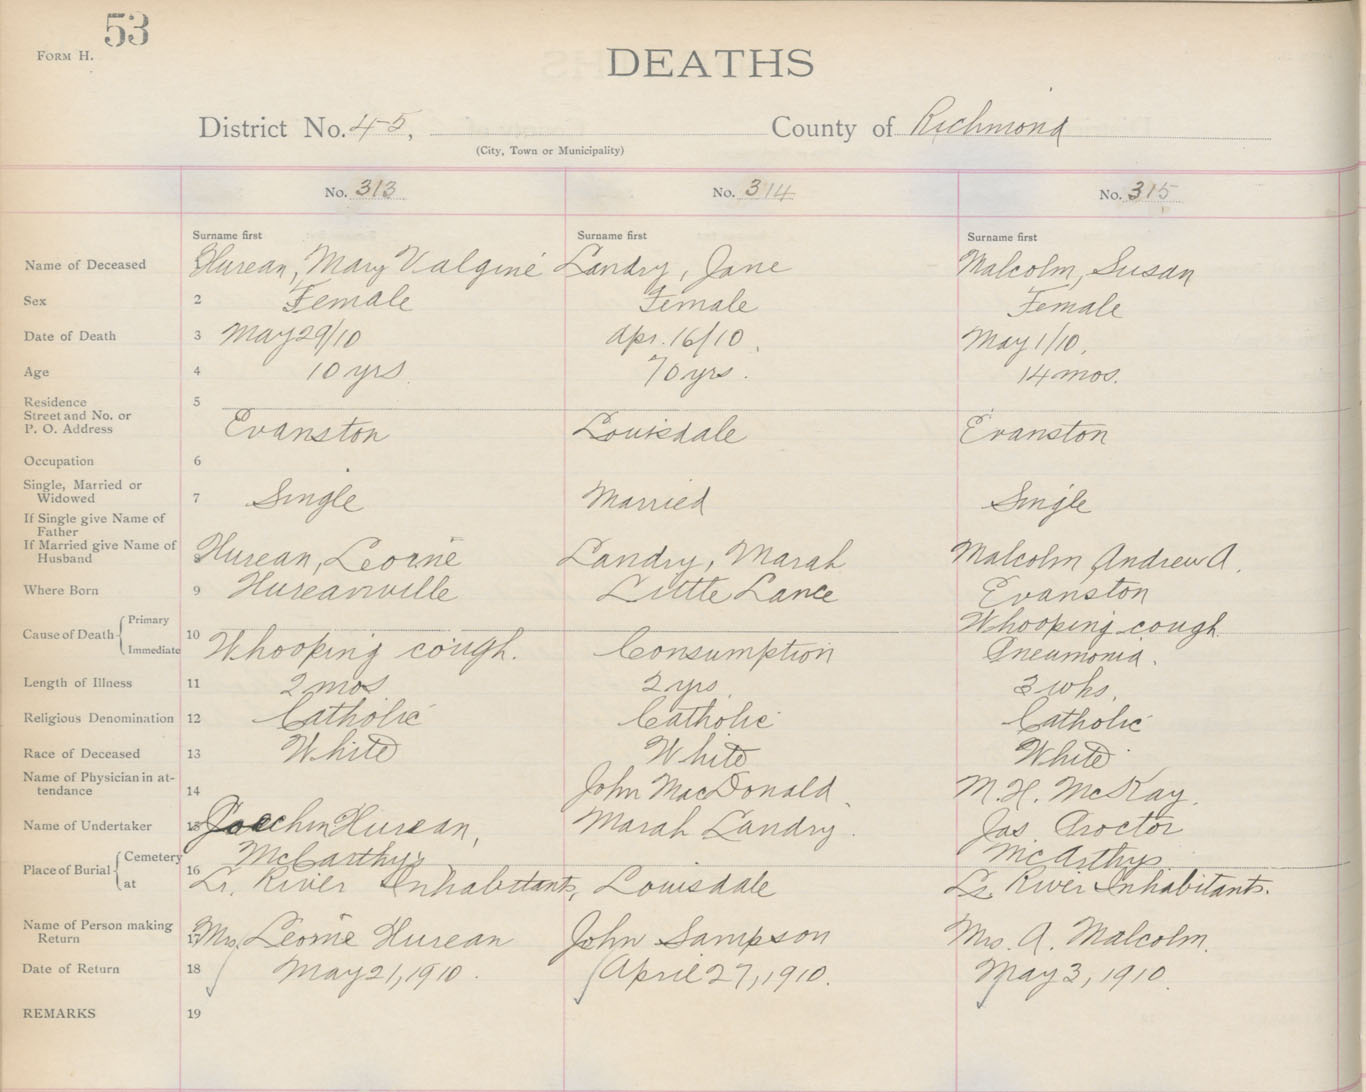 53
FORM H.
DEATHS
District No. 45, County of Richmond
(City, Town or Municipality)
No. 313 No. 314 No. 315
Surname first Surname first Surname first
Name of Deceased 1 Hurean, Mary Valgine Landry, Jane Malcolm, Susan
Sex 2 Female Female Female
Date of Death 3 May 29/10 Apr. 16/10. May 1/10.
Age 4 10 yrs. 70 yrs. 14 mos.
Residence 5
Street and No. or
P. O. Address Evanston Louisdale Evanston
Occupation 6
Single, Married or
Widowed 7 Single Married Single
If Single give Name of
Father
If Married give Name of
Husband 8 Hurean, Leonie Landry, Marah Malcolm Andrew A.
Where Born 9 Hureanville Little Lance Evanston
Cause of Death Primary 10 Whooping cough
Immediate Whooping cough. Consumption Pneumonia.
Length of Illness 11 2 mos 2 yrs. 3 whs.
Religious Denomination 12 Catholic Catholic Catholic
Race of Deceased 13 White White White
Name of Physician in at-
tendance 14 John MacDonald. M. H. McKay.
Name of Undertaker 15 Joachim Hurean, Marah Landry. Jas. Proctor
Place of Burial Cemetery 16 McCarthy's McArthys
at Lr. River Inhabitants, Louisdale Lr. River Inhabitants.
Name of Person making
Return 17 Mrs. Leonie Hurean John Sampson Mrs. A. Malcolm.
Date of Return 18 May 21, 1910. April 27, 1910. May 3, 1910.
REMARKS 19